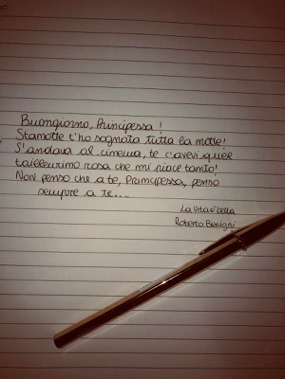 Buongiorno, Principessa!
Stanotte t'ho sognata tutta la notte!
S'andava al cinema, te c'avevi quel
tailleurino rosa che mi piace tanto!
Non penso che a te, Principessa, penso
sempre a te....
La vita è bella
Roberto Benigni